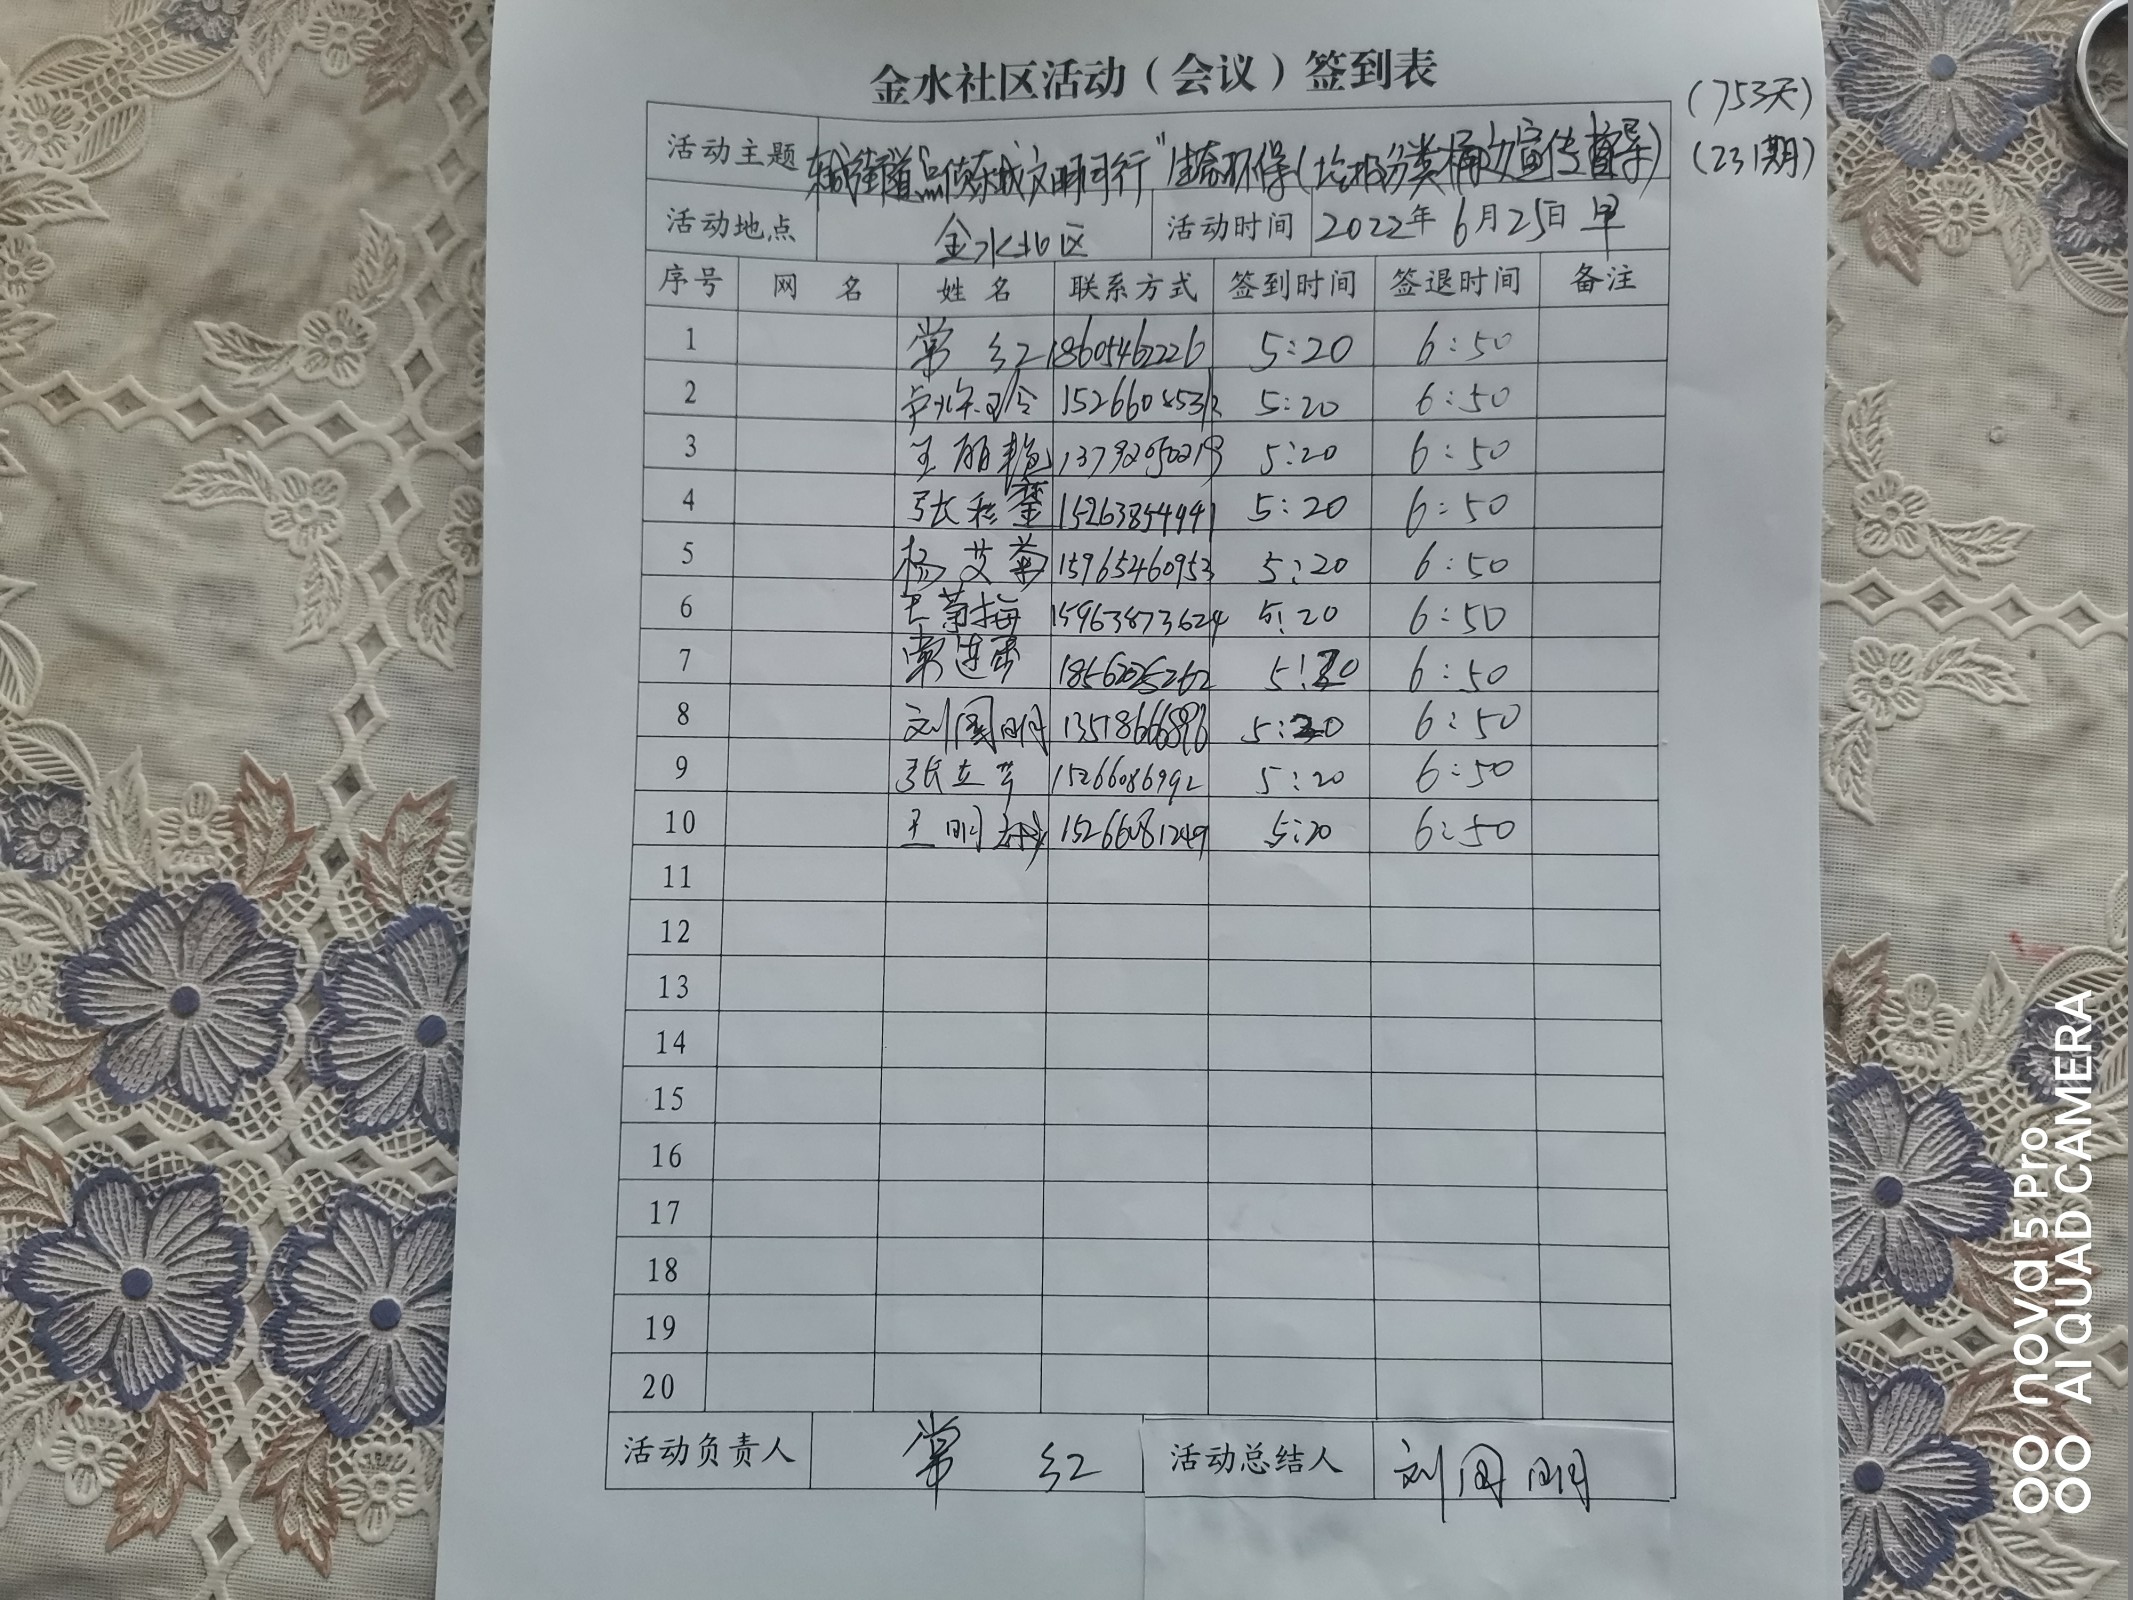 金水社区活动（会议）签到表
（753天）
（231期）
活动主题 东城街道"点侦东城文明同行"生态环保（垃圾分类桶边宣传督导）
活动地点 金水北区 活动时间 2022年6月25日 早
序号 网 名 姓 名 联系方式 签到时间 签退时间 备注
1 常 红 18605462226 5:20 6:50
2 5:20 6:50
3 王丽艳 5:20 6:50
4 张 15263854941 5:20 6:50
5 杨艾菊 15965460953 5:20 6:50
6 王菊梅 15963873624 5:20 6:50
7 18562025262 5:20 6:50
8 刘国明 5:20 6:50
9 张立芳 15266086992 5:20 6:50
10 王明 15266081249 5:20 6:50
11
12
13
14
15
16
17
18
19
20
活动负责人 常 红 活动总结人 刘国明
nova 5 Pro
AI QUAD CAMERA